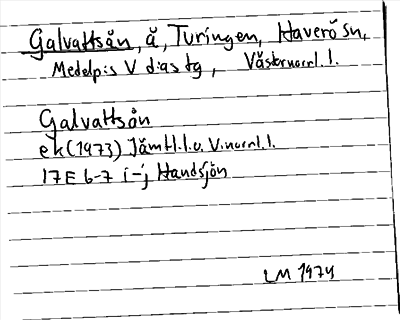 Galvattsån, å, Turingen, Haverö sn,
Medelpis V d:as tg, Västernorrl. l.
Galvattsån
ek (1973) Jämtl. l. o. V.norrl. l.
17E 6-7 i-j Handsjön
LM 1974